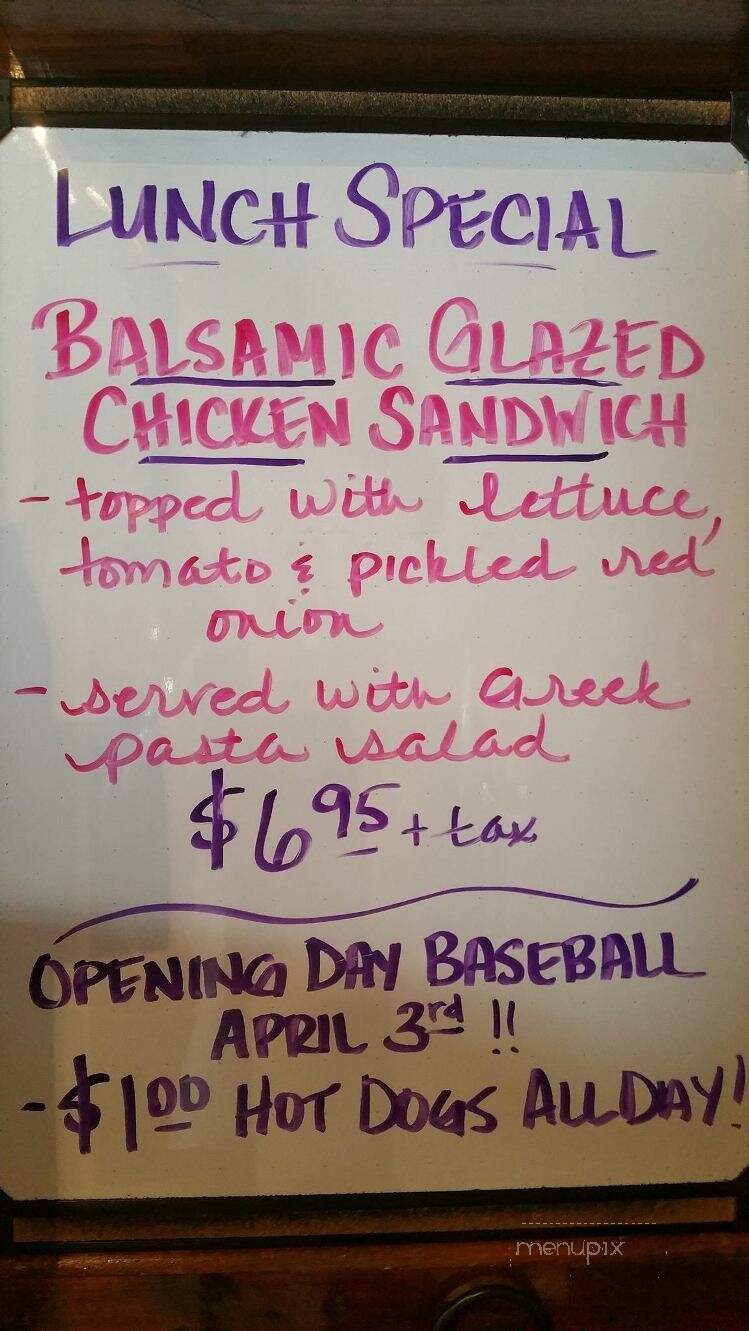 LUNCH SPECIAL
BALSAMIC GLAZED
CHICKEN SANDWICH
- topped with lettuce,
tomato & pickled red
onion
- served with Greek
pasta salad
$6.95 + tax
OPENING DAY BASEBALL
APRIL 3rd !!
- $1.00 HOT DOGS ALL DAY!
menupix